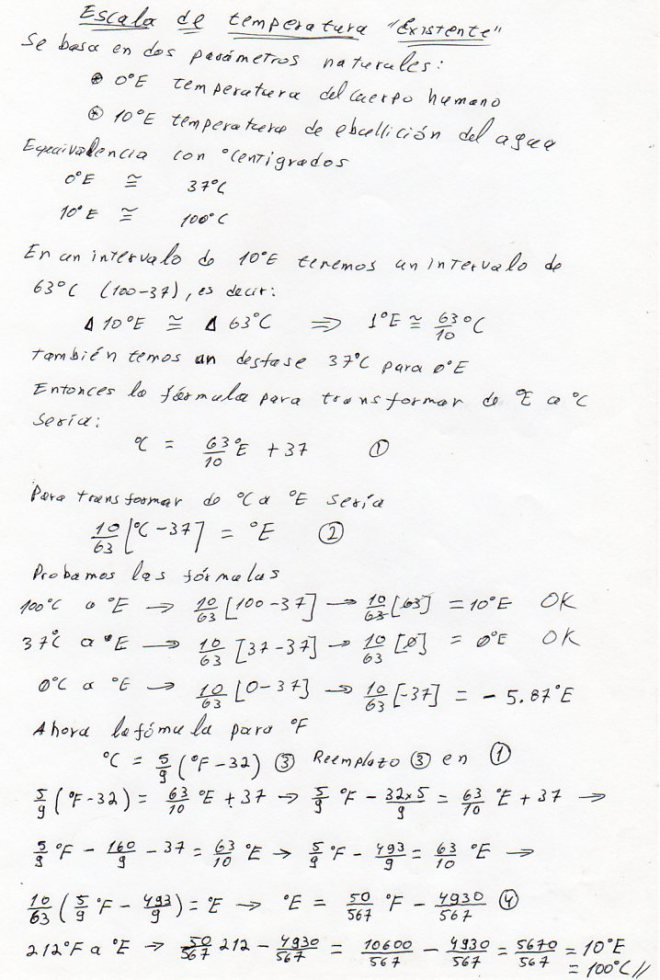 Escala de temperatura "Existente"
Se basa en dos parámetros naturales:
⊛ 0°E temperatura del cuerpo humano
⊛ 10°E temperatura de ebullición del agua
Equivalencia con °centigrados
0°E ≅ 37°C
10°E ≅ 100°C
En un intervalo do 10°E tenemos un intervalo de
63°C (100-37), es decir:
Δ 10°E ≅ Δ 63°C ⇒ 1°E ≅ 63/10 °C
también temos un desfase 37°C para 0°E
Entonces la fórmula para transformar do °E a °C
sería:
°C = 63/10 °E + 37 ①
Para transformar do °C a °E sería
10/63 [°C - 37] = °E ②
Probamos las fórmulas
100°C a °E → 10/63 [100-37] → 10/63 [63] = 10°E OK
37°C a °E → 10/63 [37-37] → 10/63 [0] = 0°E OK
0°C a °E → 10/63 [0-37] → 10/63 [-37] = - 5.87°E
Ahora la fómula para °F
°C = 5/9 (°F-32) ③ Reemplazo ③ en ①
5/9 (°F-32) = 63/10 °E + 37 → 5/9 °F - 32x5/9 = 63/10 °E + 37 →
5/9 °F - 160/9 - 37 = 63/10 °E → 5/9 °F - 493/9 = 63/10 °E →
10/63 (5/9 °F - 493/9) = °E → °E = 50/567 °F - 4930/567 ④
212°F a °E → 50/567 212 - 4930/567 = 10600/567 - 4930/567 = 5670/567 = 10°E
= 100°C //